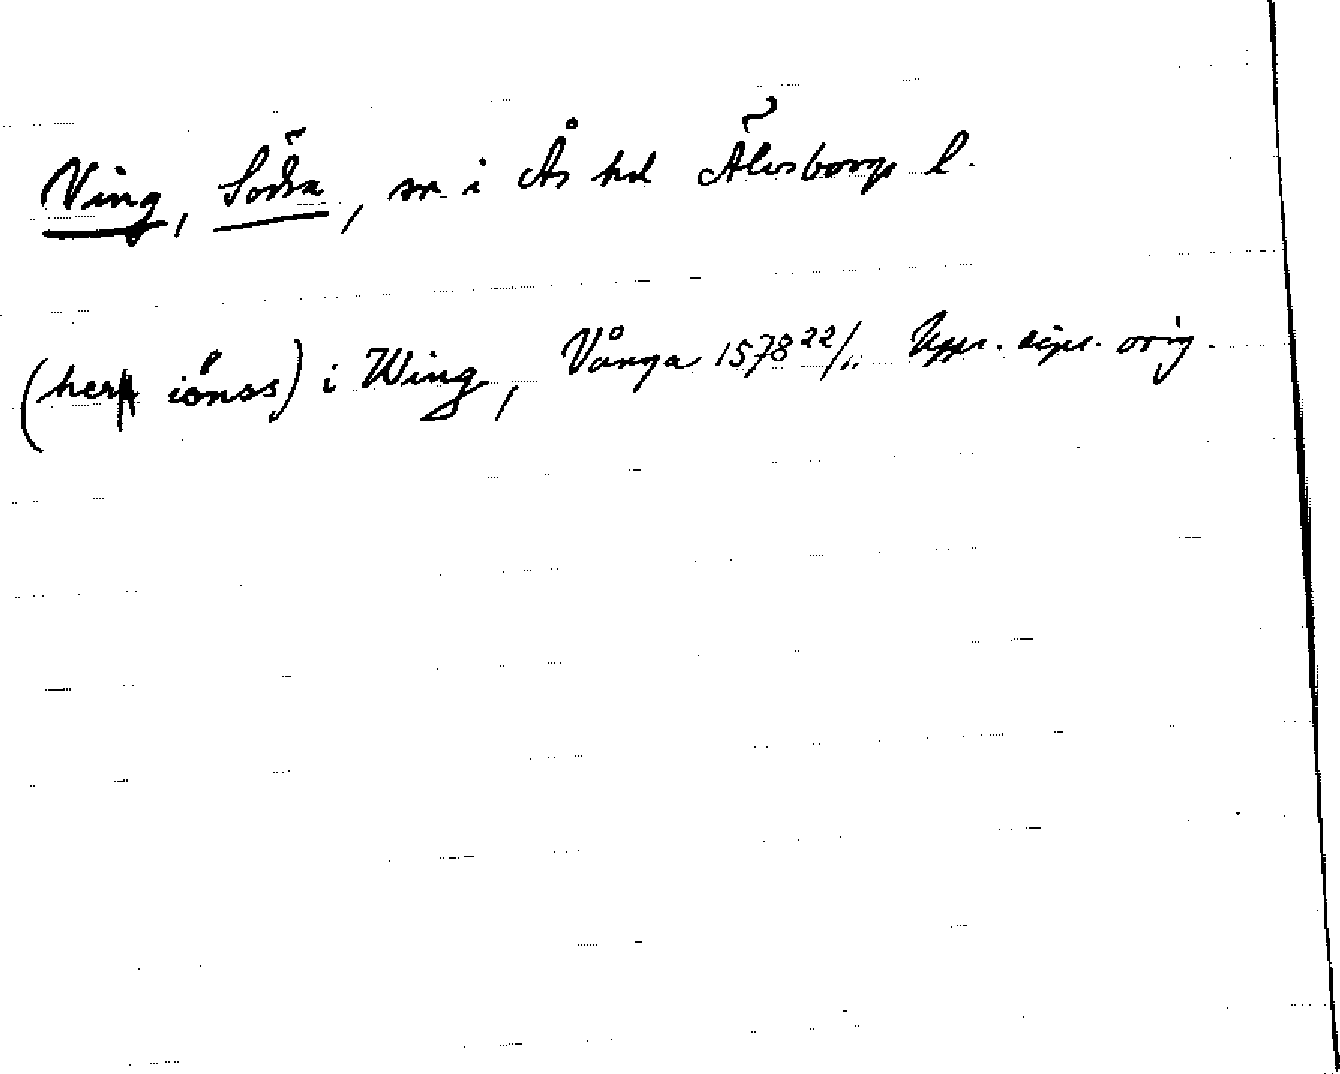 Ving, Södra, sn i Ås hd Älvsborgs l.
(her iönss) i Wing, Vånga 1578 22/11 Upps. dipl. orig.